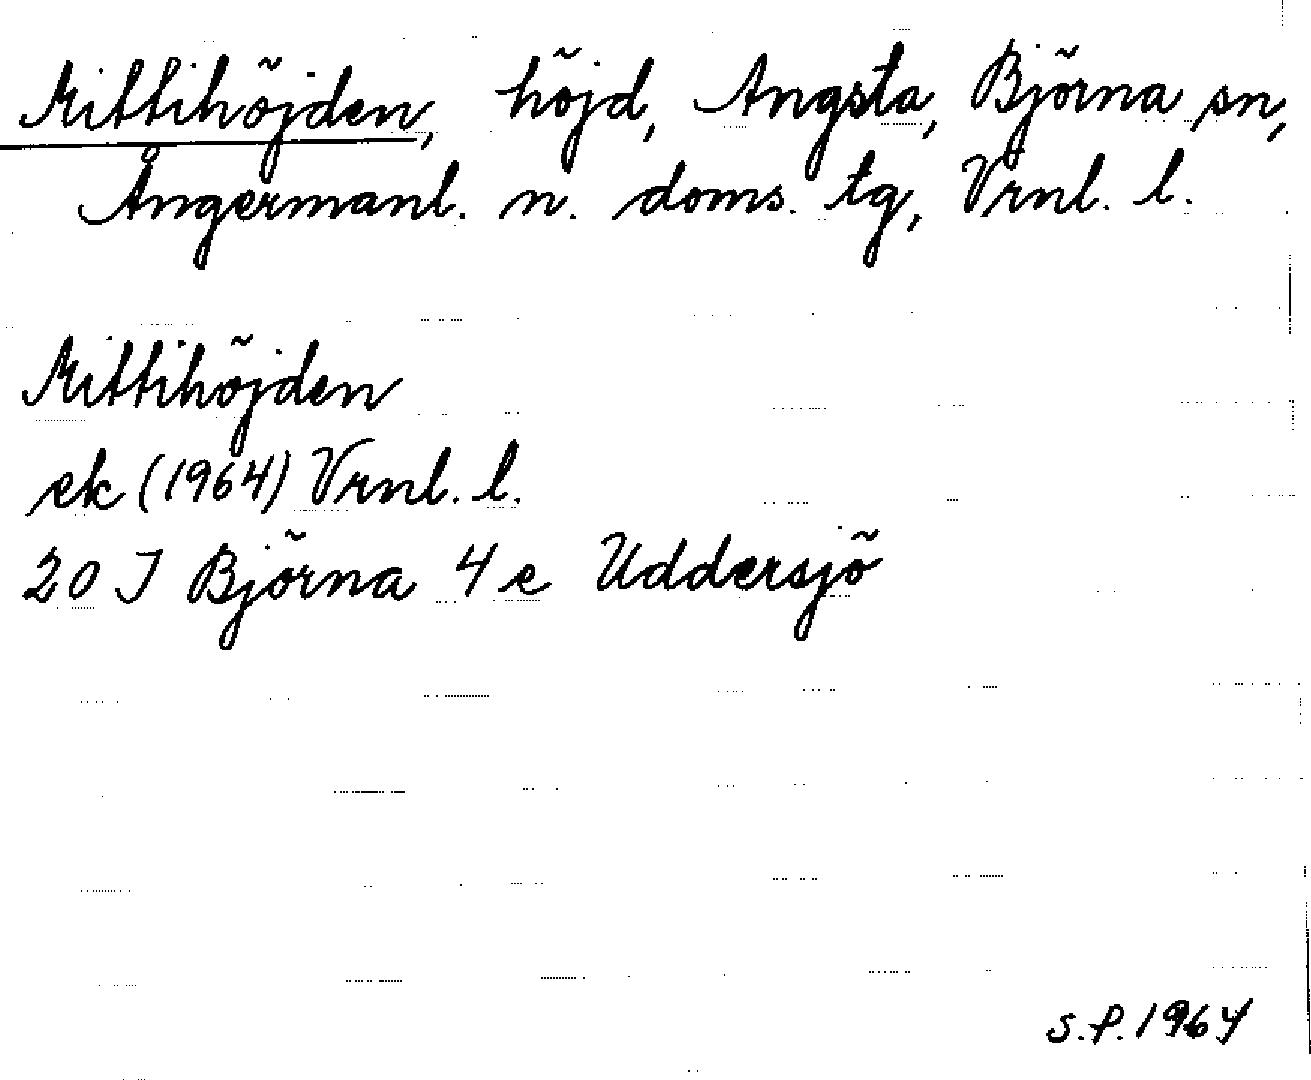 Mittihöjden, höjd, Angsta, Björna sn,
Ångermanl. n. doms. tg, Vrnl. l.
Mittihöjden
ek (1964) Vrnl. l.
20 J Björna 4 e Uddersjö
S.P. 1964